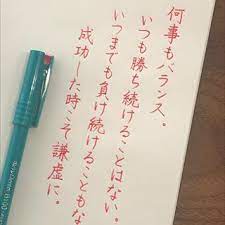 何事もバランス。
いつも勝ち続けることはない。
いつまでも負け続けることもな
成功した時こそ謙虚に。